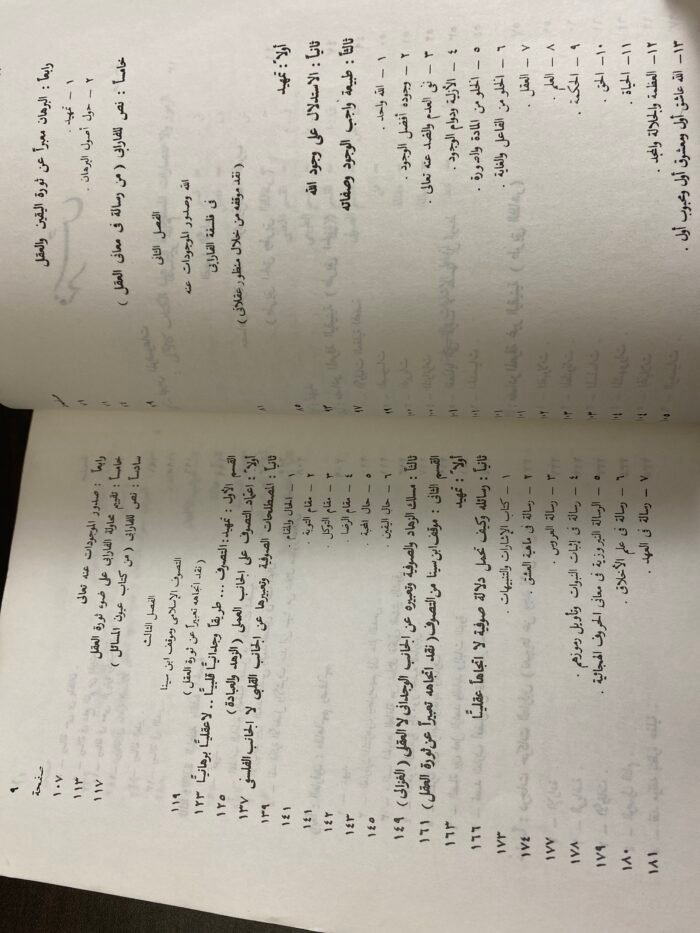 رابعاً : البرهان معبراً عن ثورة اليقين والعقل
١ – تمهيد
٢ – حول أصول البرهان .
خامساً : نص للفارابى ( من رسالة فى معانى العقل )
الفصل الثانى
الله وصدور الموجودات عنه
فى فلسفة الفارابى
( نقد موقفه من خلال منظور عقلانى )
أولاً : تمهيد
ثانياً : الاستدلال على وجود الله
ثالثاً : طبيعة واجب الوجود وصفاته
١ – الله واحد .
٢ – وجوده أفضل الوجود .
٣ – نفى العدم والضد عنه تعالى .
٤ – الأزلية ودوام الوجود .
٥ – الخلو من المادة والصورة .
٦ – الخلو من الفاعل والغاية .
٧ – العقل .
٨ – العلم .
٩ – الحكمة .
١٠ – الحق .
١١ – الحياة .
١٢ – العظمة والجلالة والمجد .
١٣ – الله عاشق أول ومعشوق أول ومحبوب أول .
٩
صفحة
رابعاً : صدور الموجودات عنه تعالى ١٠٧
خامساً : تقويم محاولة الفارابى على ضوء ثورة العقل ١١٣
سادساً : نص للفارابى ( من كتاب عيون المسائل ) ١١٧
الفصل الثالث ١١٩
التصوف الإسلامى وموقف ابن سينا
( نقد اتجاهه تعبيراً عن ثورة العقل )
القسم الأول : تمهيد : التصوف ... طريقاً وجدانياً قلبياً .. لا عقلياً برهانياً ١٢٣
أولاً : اعتماد التصوف على الجانب العملى ( الزهد والعبادة ) ١٢٥
ثانياً : المصطلحات الصوفية وتعبيرها عن الجانب القلبى لا الجانب الفلسفى ١٣٧
١ – الحال والمقام . ١٣٩
٢ – مقام التوبة . ١٤١
٣ – مقام التوكل . ١٤١
٤ – مقام الرضا . ١٤٢
٥ – حال المحبة . ١٤٣
٦ – حال اليقين . ١٤٥
ثالثاً : مسلك الزهاد والصوفية وتعبيره عن الجانب الوجدانى لا العقلى ( الغزالى ) ١٤٩
القسم الثانى : موقف ابن سينا من التصوف ( نقد اتجاهه تعبيراً عن ثورة العقل ) ١٦١
أولاً : تمهيد ١٦٣
ثانياً : رسائله وكيف تحمل دلالة صوفية لا اتجاهاً عقلياً ١٦٦
١ – كتاب الإشارات والتنبيهات . ١٧٣
٢ – رسالة فى ماهية العشق . ١٧٤
٣ – رسالة العروس . ١٧٧
٤ – رسالة فى إثبات النبوات وتأويل رموزهم . ١٧٨
٥ – الرسالة النيروزية فى معانى الحروف الهجائية . ١٧٩
٦ – رسالة فى علم الأخلاق . ١٨٠
٧ – رسالة فى العهد . ١٨١